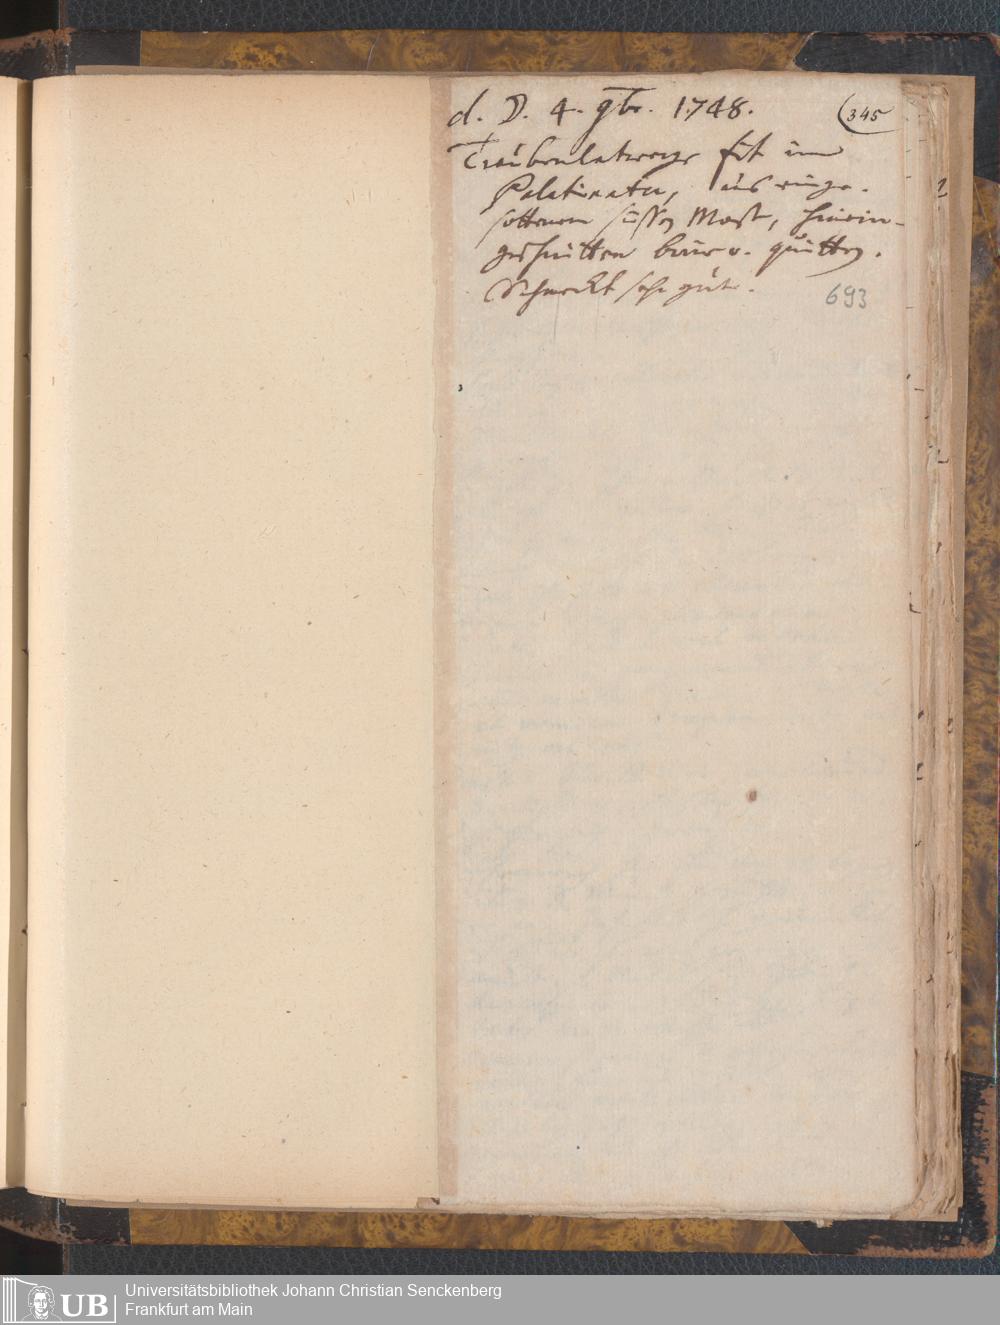 d. D. 4. 9br. 1748.
(345
Traübenlatwerge fit im
Palatinatu, aus einge-
sottenem süssen Most, hinein-
geschnitten birn u. quitten.
Schmeckt sehr gut.
693
UB
Universitätsbibliothek Johann Christian Senckenberg
Frankfurt am Main